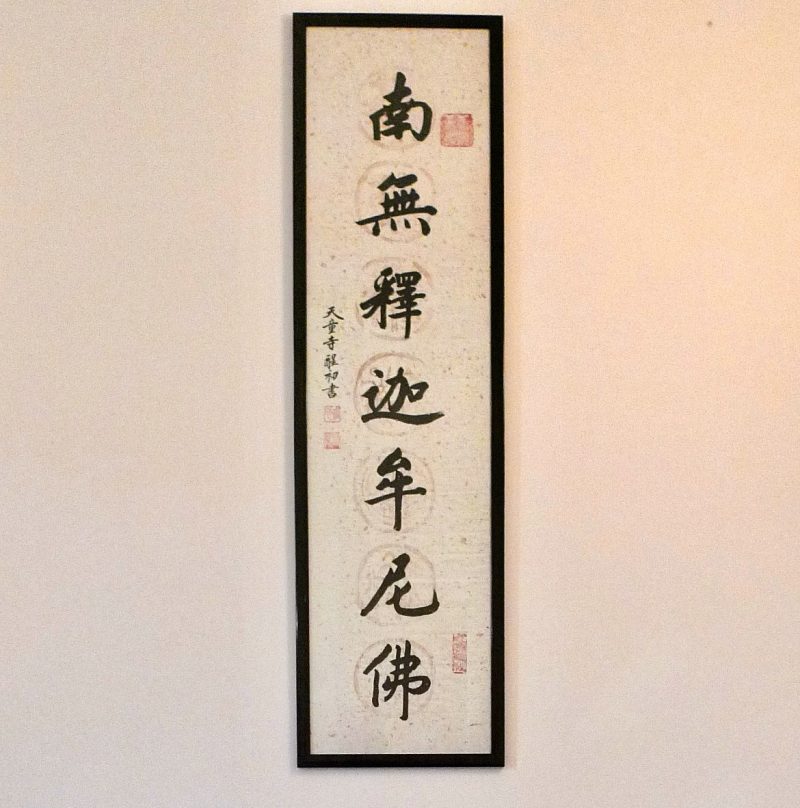 南無釋迦牟尼佛
天童寺醒初書